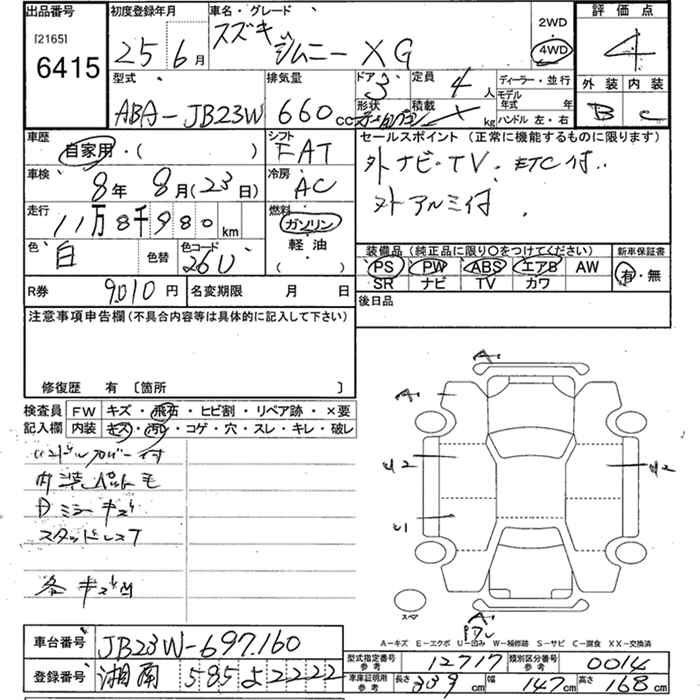 出品番号 初度登録年月 車名・グレード 2WD 評価点
[2165] 25 6月 スズキ ジムニー XG 4WD 4
6415 外装 内装
型式 排気量 ドア 3 定員 4人 ディーラー・並行
ABA-JB23W 660cc 形状 積載 kg モデル年式 年 ハンドル 左・右 B C
車歴 シフト セールスポイント (正常に機能するものに限ります)
自家用・( ) FAT 外ナビ・TV・ETC付
車検 8年 8月(23日) 冷房 AC 外アルミ付
走行 11万8千980km 燃料 ガソリン
軽油
( )
色 白 色替 色コード 26U 装備品 (純正品に限り○をつけてください) 新車保証書
PS PW ABS エアB AW 有・無
SR ナビ TV カワ
R券 9,010円 名変期限 月 日 後日品
注意事項申告欄(不具合内容等は具体的に記入して下さい)
修復歴 有 〔箇所 〕
検査員 FW キズ・飛石・ヒビ割・リペア跡・×要
記入欄 内装 キズ・汚レ・コゲ・穴・スレ・キレ・破レ
ハンドルカバー付
Dミラーキズ
スタッドレスT
各キズ凹
A1
A1
スペア
A-キズ E-エクボ U-凹み W-補修跡 S-サビ C-腐食 XX-交換済
車台番号 JB23W-697160
型式指定番号 参考 12717 類別区分番号 参考 0014
登録番号 湘南 585 よ 2222
車庫証明用 参考 長さ 339cm 幅 147cm 高さ 168cm